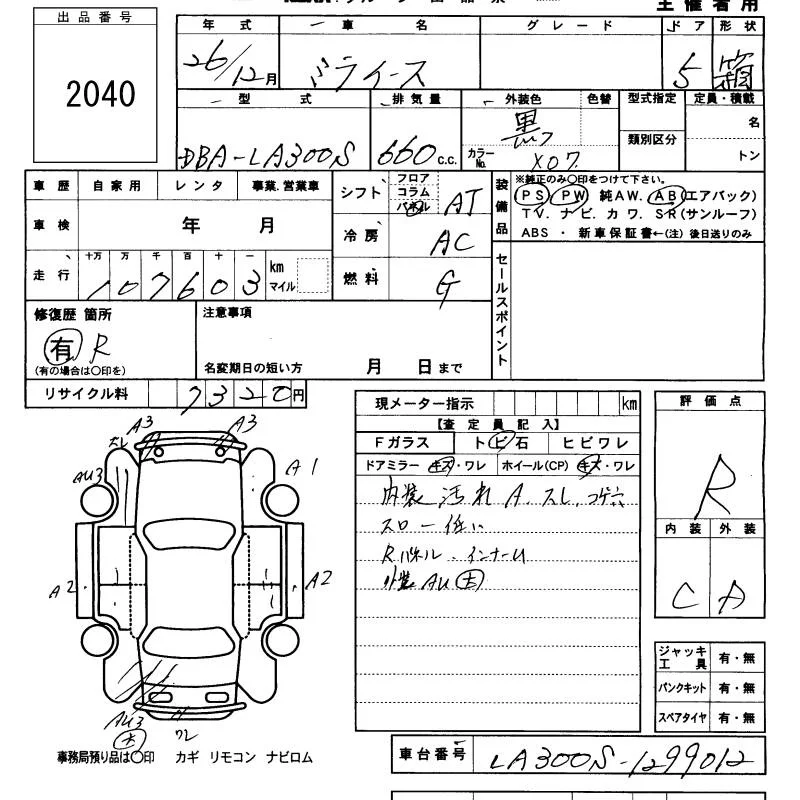 主催者用
出品番号
2040
年式 車名 グレード ドア 形状
26/12月 ミライース 5 箱
型式 排気量 外装色 色替 型式指定 定員・積載
DBA-LA300S 660c.c. 黒 カラーNo. X07 類別区分 名 トン
車歴 自家用 レンタ 事業.営業車
車検 年 月
走行 十万 万 千 百 十 一 km マイル
107603
シフト フロア コラム パネル AT
冷房 AC
燃料 G
装備品
※純正のみ〇印をつけて下さい。
PS PW 純AW. AB(エアバック)
TV. ナビ. カワ. SR(サンルーフ)
ABS ・ 新車保証書←(注) 後日送りのみ
セールスポイント
修復歴 箇所
有 R
(有の場合は〇印を)
注意事項
名変期日の短い方 月 日まで
リサイクル料 7320円
現メーター指示 km
【査定員記入】
Fガラス トビ石 ヒビワレ
ドアミラー キズ・ワレ ホイール(CP) キズ・ワレ
内装 汚れ A. スレ. コゲ穴
スロー低い
Rパネル.インナーU
外装AU 大
評価点
R
内装 外装
C A
A3 A3
スレ
AU3 A1
A2 A2
AU3
大
ワレ
ジャッキ工具 有・無
パンクキット 有・無
スペアタイヤ 有・無
事務局預り品は〇印 カギ リモコン ナビロム
車台番号 LA300S-1299012